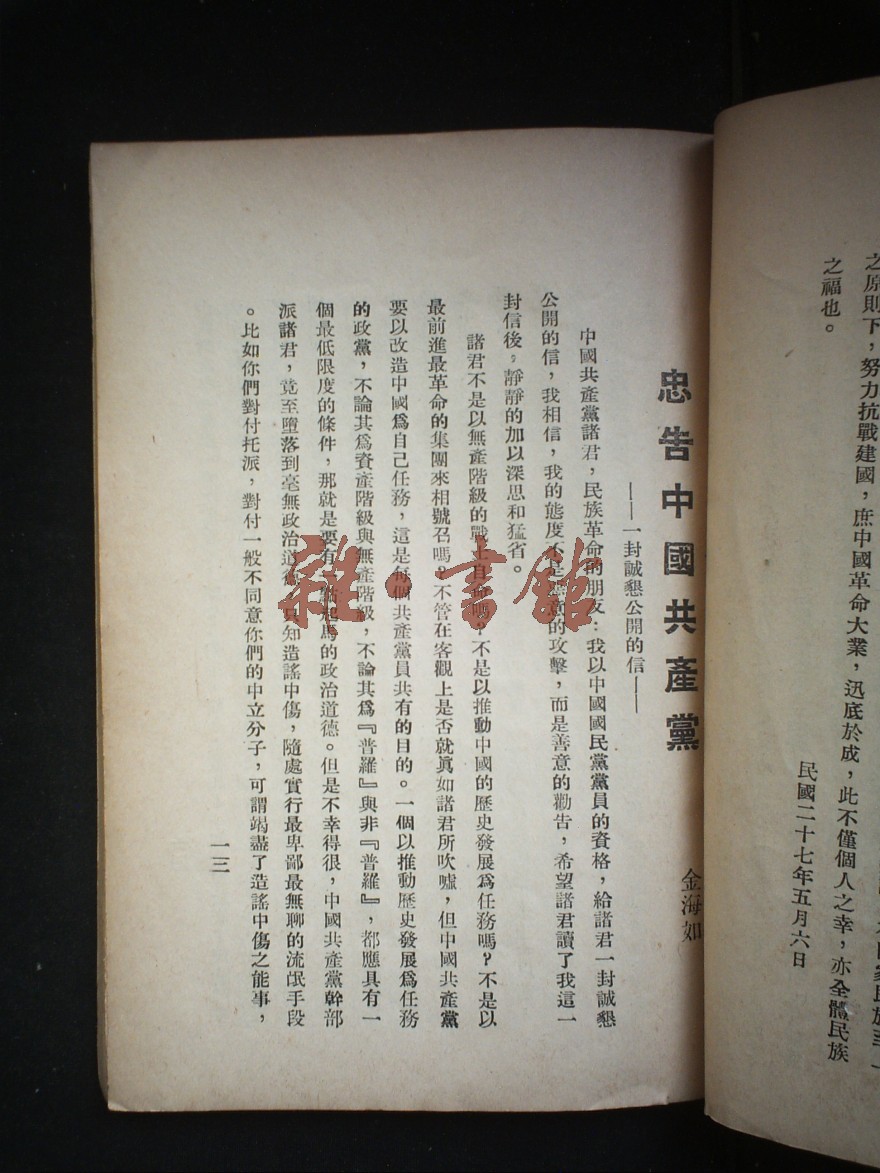 之原則下，努力抗戰建國，庶中國革命大業，迅底於成，此不僅個人之幸，亦全體民族
之福也。
民國二十七年五月六日
忠告中國共產黨
金海如
——一封誠懇公開的信——
中國共產黨諸君，民族革命的朋友：我以中國國民黨黨員的資格，給諸君一封誠懇
公開的信，我相信，我的態度不是惡意的攻擊，而是善意的勸告，希望諸君讀了我這一
封信後，靜靜的加以深思和猛省。
諸君不是以無產階級的戰士自命嗎？不是以推動中國的歷史發展爲任務嗎？不是以
最前進最革命的集團來相號召嗎？不管在客觀上是否就眞如諸君所吹噓，但中國共產黨
要以改造中國爲自己任務，這是每個共產黨員共有的目的。一個以推動歷史發展爲任務
的政黨，不論其爲資產階級與無產階級，不論其爲『普羅』與非『普羅』，都應具有一
個最低限度的條件，那就是要有 起馬的政治道德。但是不幸得很，中國共產黨幹部
派諸君，竟至墮落到毫無政治道德，只知造謠中傷，隨處實行最卑鄙最無聊的流氓手段
。比如你們對付托派，對付一般不同意你們的中立分子，可謂竭盡了造謠中傷之能事，
一三
雜·書館